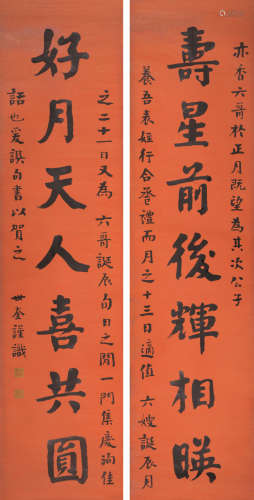 亦香六哥於正月既望為其次公子
壽星前後輝相暎
養吾表姪行合巹禮而月之十三日適值 六嫂誕辰月
之二十一日又為 六哥誕辰旬日之間一門集慶洵佳
好月天人喜共圓
話也爰譔句書以賀之
世奎謹識